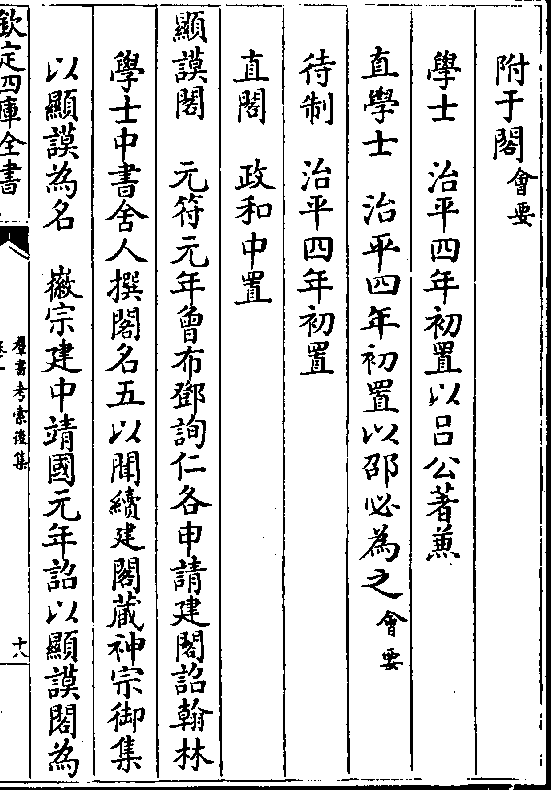 附于閣會要
學士　治平四年初置以呂公著兼
直學士　治平四年初置以邵必為之會要
待制　治平四年初置
直閣　政和中置
顯謨閣　元符元年曾布鄧詢仁各申請建閣詔翰林
學士中書舍人撰閣名五以聞續建閣藏神宗御集
以顯謨為名　徽宗建中靖國元年詔以顯謨閣為
欽定四庫全書
羣書考索後集
十八